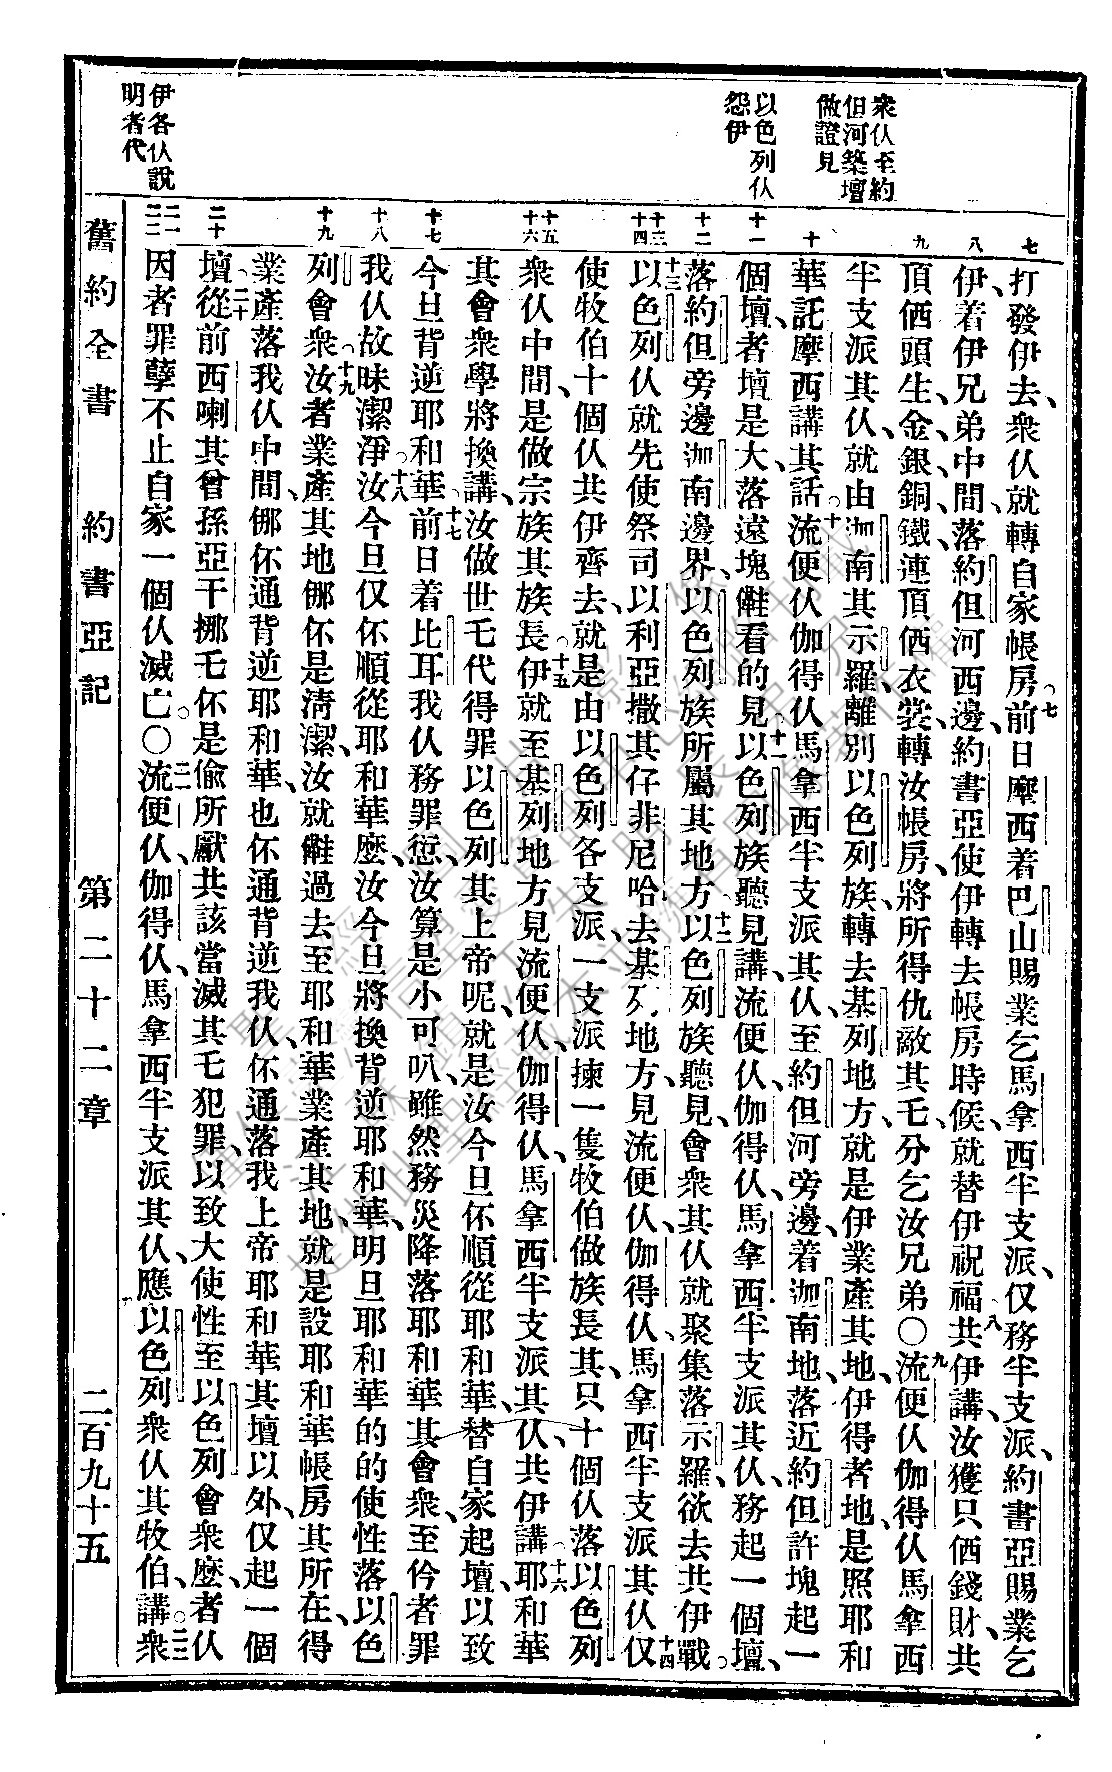 衆仈至約
但河築壇
做證見
以色列仈
怨伊
伊各仈說
明者代
七
八
九
十
十一
十二
十三
十四
十五
十六
十七
十八
十九
二十
二一
二二
打發伊去、衆仈就轉自家帳房。七前日摩西着巴山賜業乞馬拿西半支派、仅務半支派、約書亞賜業乞
伊、着伊兄弟中間、落約但河西邊、約書亞使伊轉去帳房時候、就替伊祝福、八共伊講、汝獲只倻錢財、共
頂倻頭生、金、銀、銅、鐵、連頂倻衣裳、轉汝帳房、將所得仇敵其乇、分乞汝兄弟。〇九流便仈、伽得仈、馬拿西
半支派其仈、就由迦南其示羅離別以色列族、轉去基列地方、就是伊業產其地、伊得者地、是照耶和
華託摩西講其話。十流便仈、伽得仈、馬拿西半支派其仈、至約但河旁邊、着迦南地、落近約但許塊起一
個壇、者壇是大、落遠塊儺看的見。十一以色列族聽見講、流便仈、伽得仈、馬拿西半支派其仈、務起一個壇、
落約但旁邊、迦南邊界、以色列族所屬其地方。十二以色列族聽見、會衆其仈就聚集落示羅、欲去共伊戰。
十三以色列仈就先使祭司以利亞撒其仔非尼哈、去基列地方、見流便仈、伽得仈、馬拿西半支派其仈、十四仅
使牧伯十個仈共伊齊去、就是由以色列各支派、一支派揀一隻牧伯做族長其、只十個仈落以色列
衆仈中間、是做宗族其族長。十五伊就至基列地方、見流便仈、伽得仈、馬拿西半支派其仈、共伊講、十六耶和華
其會衆學將換講、汝做世乇代得罪以色列其上帝呢、就是汝今旦伓順從耶和華、替自家起壇、以致
今旦背逆耶和華。十七前日着比耳、我仈務罪愆、汝算是小可叭、雖然務災降落耶和華其會衆、至仱者罪
我仈故昧潔淨、十八汝今旦仅伓順從耶和華麽、汝今旦將換背逆耶和華、明旦耶和華的的使性落以色
列會衆。十九汝者業產其地、倻伓是清潔、汝就儺過去至耶和華業產其地、就是設耶和華帳房其所在、得
業產落我仈中間、倻伓通背逆耶和華、也伓通背逆我仈、伓通落我上帝耶和華其壇以外、仅起一個
壇。二十從前西喇其曾孫亞干、挪乇伓是偷所厭共該當滅其乇犯罪、以致大使性至以色列會衆麽、者仈
因者罪孽、不止自家一個仈滅亡。〇二一流便仈、伽得仈、馬拿西半支派其仈、應以色列衆仈其牧伯、講、二二衆
舊約全書　約書亞記　第二十二章　二百九十五